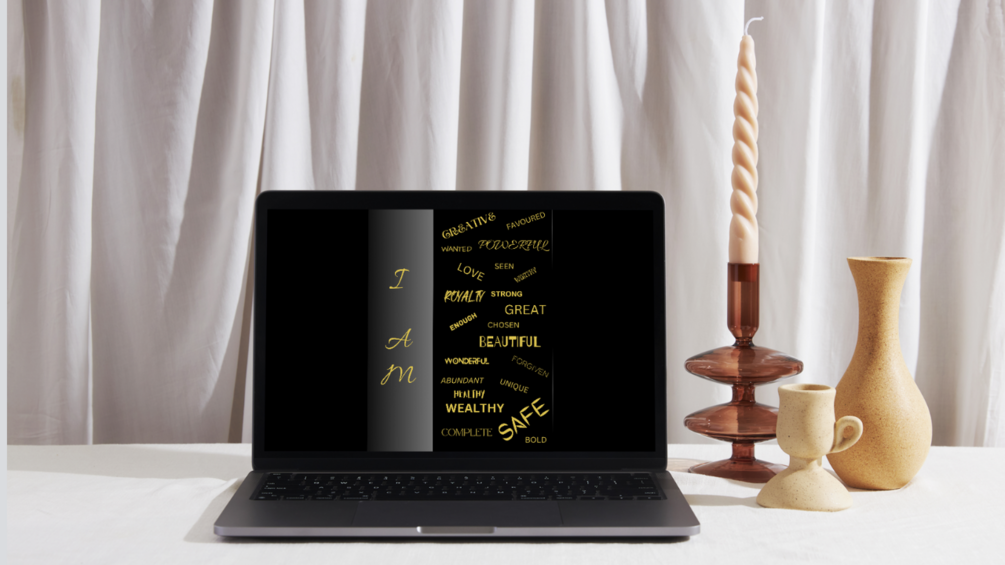 I
A
M
CREATIVE
FAVOURED
WANTED
POWERFUL
LOVE
SEEN
ROYALTY
STRONG
GREAT
ENOUGH
CHOSEN
BEAUTIFUL
WONDERFUL
FORGIVEN
ABUNDANT
UNIQUE
HEALTHY
WEALTHY
SAFE
COMPLETE
BOLD